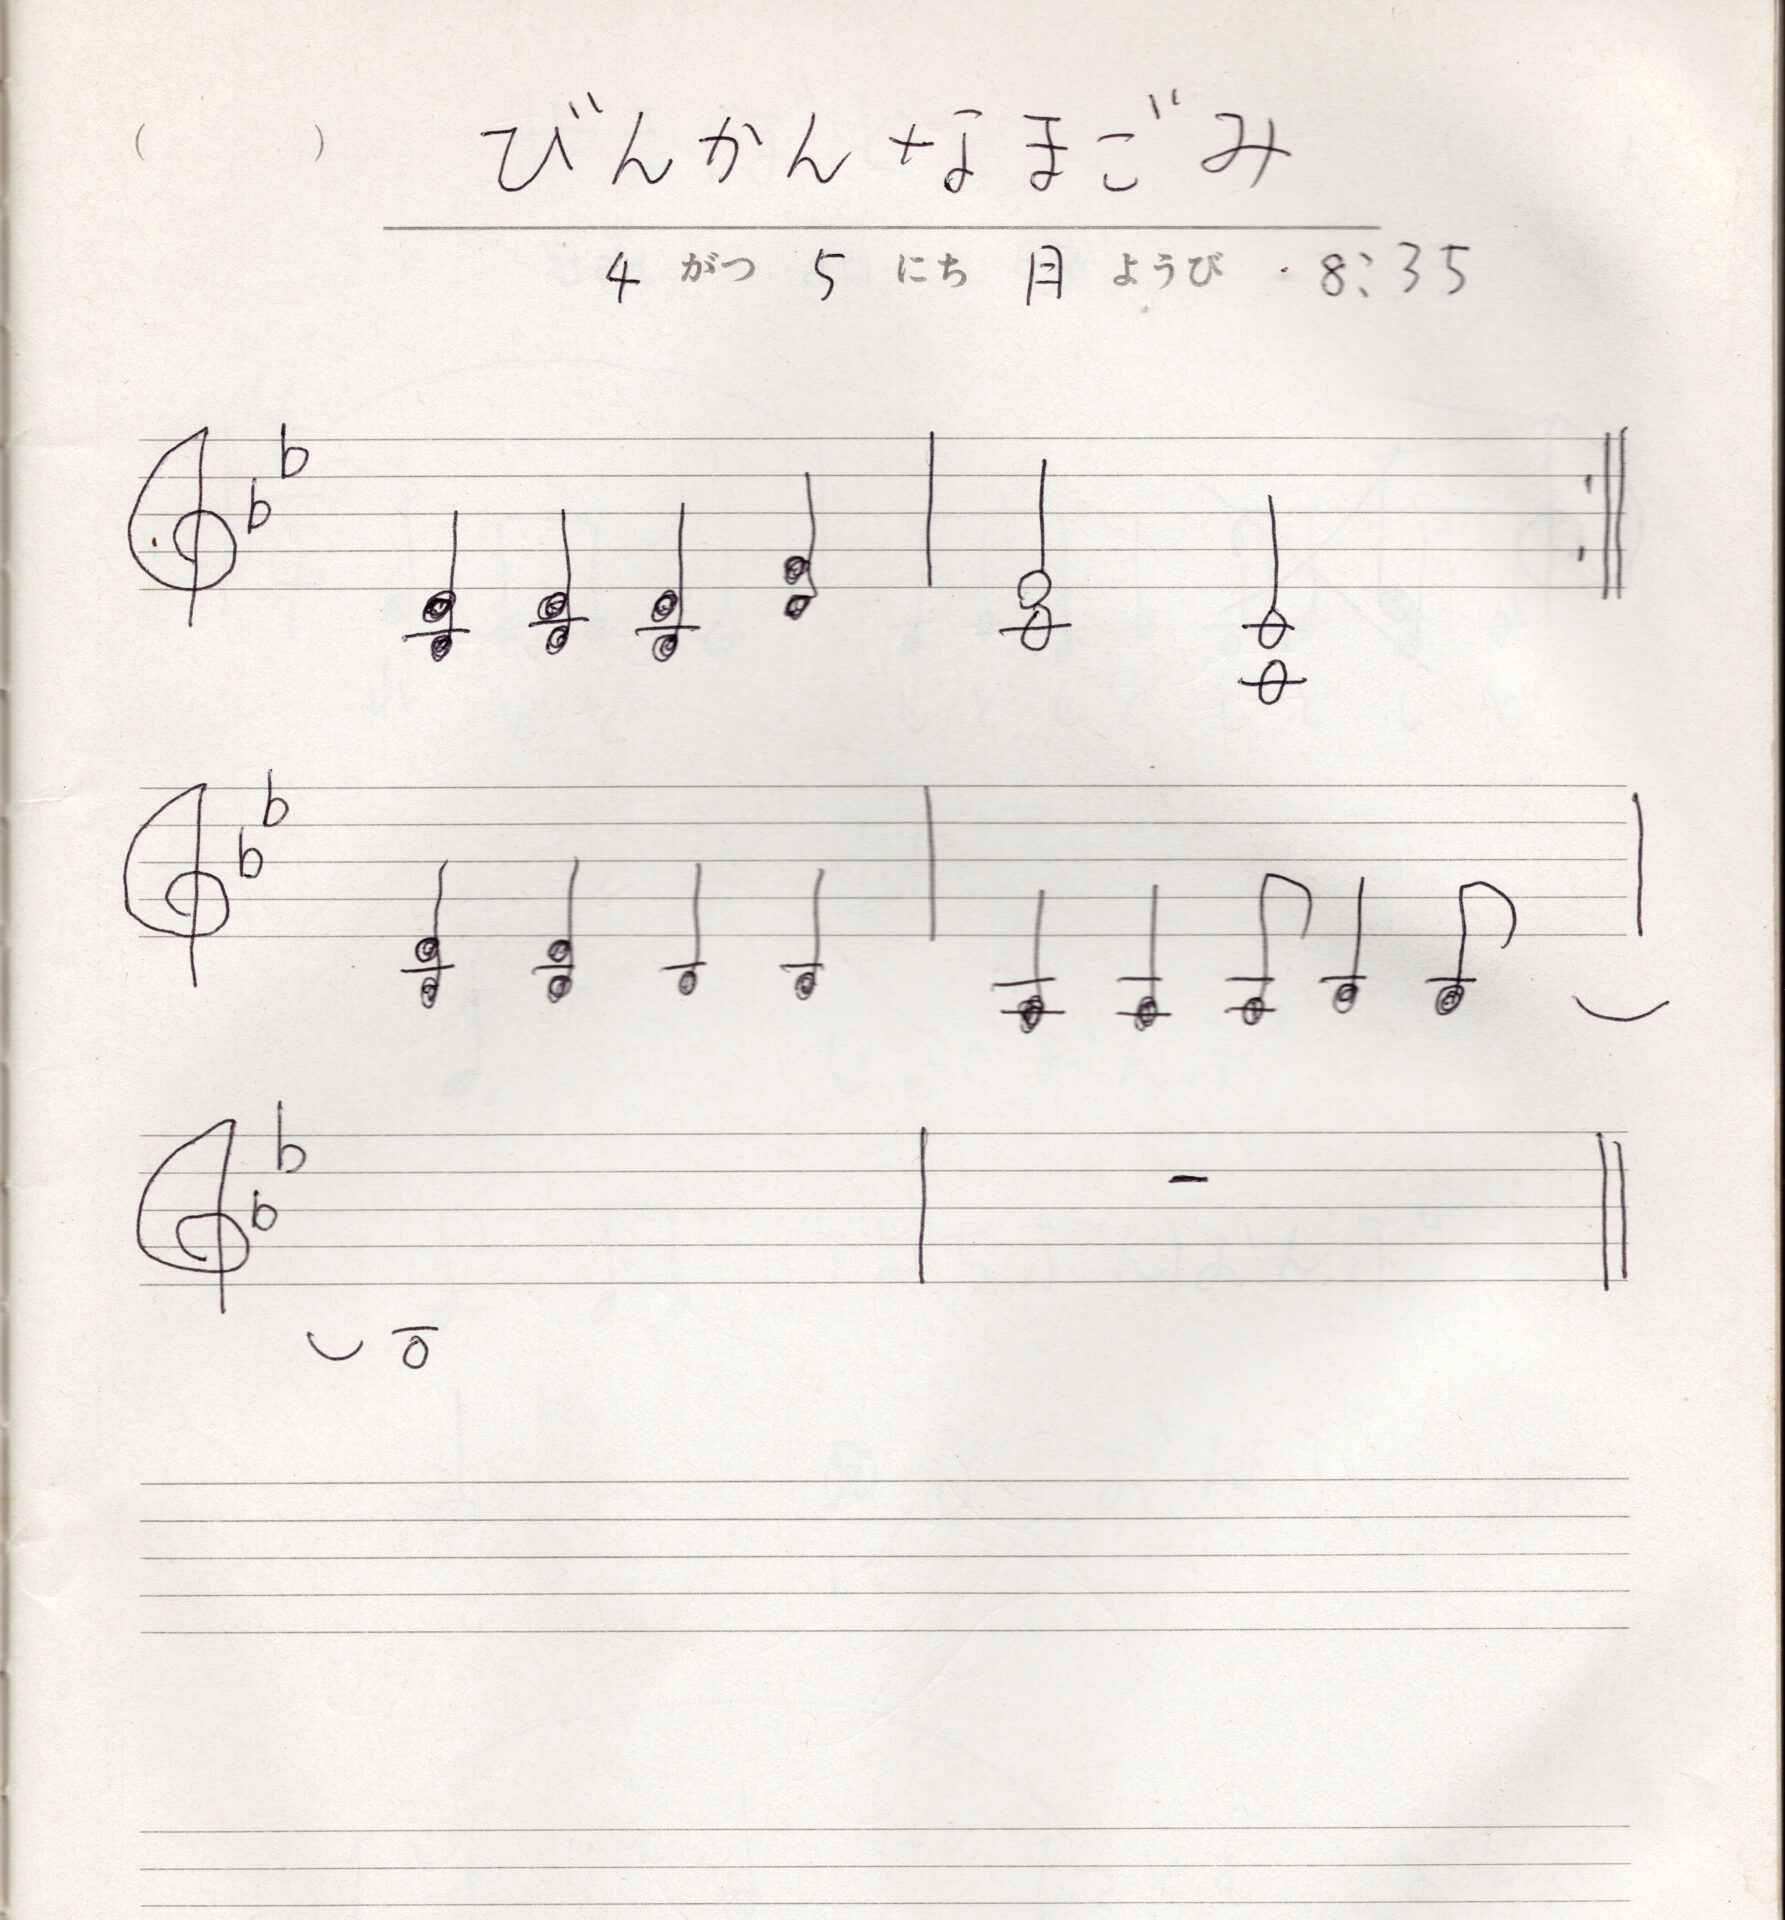 ( ) びんかんなまごみ
4 がつ 5 にち 月 ようび 8:35